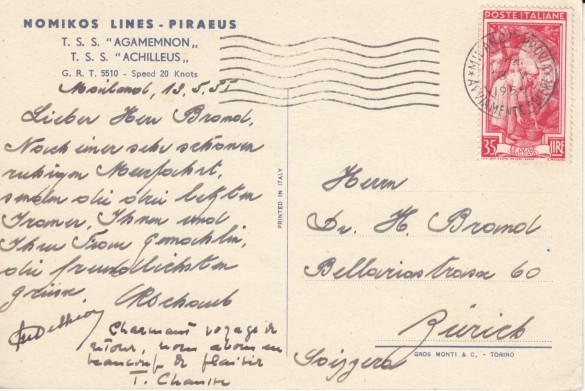 NOMIKOS LINES - PIRAEUS
T. S. S. "AGAMEMNON„
T. S. S. "ACHILLEUS„
G. R. T. 5510 - Speed 20 Knots
Mailand, 13.5.55
Lieber Herr Brand,
Nach einer sehr schönen
ruhigen Meerfahrt,
senden die drei letzten
Ihnen und
Ihrer Frau Gemahlin,
die freundlichsten
Grüsse
Charmant voyage de
retour, nous avons eu
beaucoup de plaisir
T.
PRINTED IN ITALY
POSTE ITALIANE
MILANO
35 LIRE
Herrn
Dr. H. Brand
Bellariastrasse 60
Zürich
Svizzera
GROS MONTI & C. - TORINO